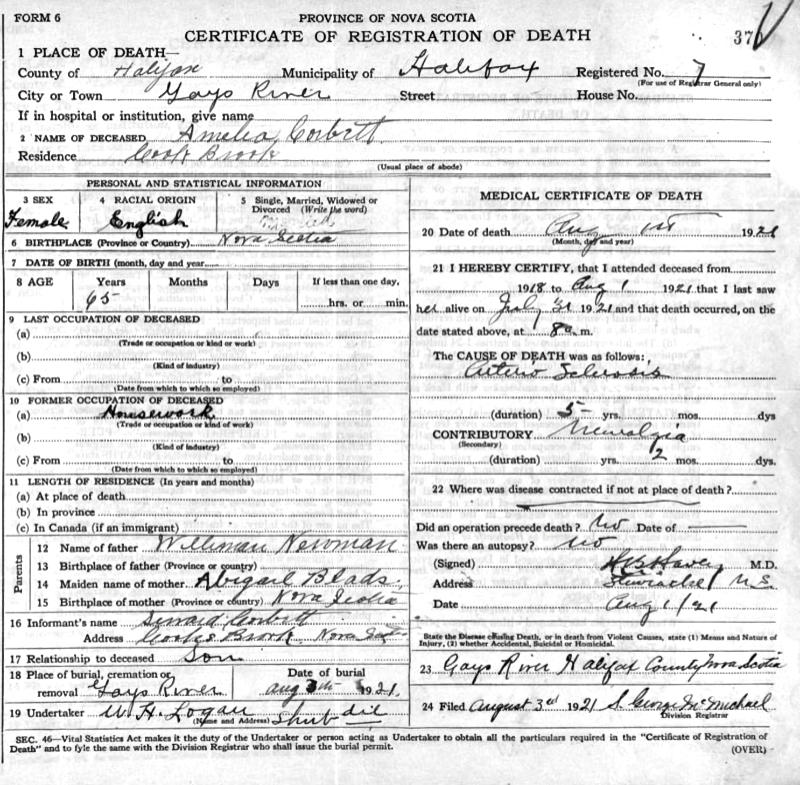 FORM 6
PROVINCE OF NOVA SCOTIA
CERTIFICATE OF REGISTRATION OF DEATH
37
1 PLACE OF DEATH—
County of Halifax Municipality of Halifax Registered No. 7
(For use of Registrar General only)
City or Town Gays River Street House No.
If in hospital or institution, give name
2 NAME OF DECEASED Amelia Corbett
Residence Cooks Brook
(Usual place of abode)
PERSONAL AND STATISTICAL INFORMATION
3 SEX Female
4 RACIAL ORIGIN English
5 Single, Married, Widowed or Divorced (Write the word)
6 BIRTHPLACE (Province or Country) Nova Scotia
7 DATE OF BIRTH (month, day and year)
8 AGE Years Months Days If less than one day,
65 hrs. or min.
9 LAST OCCUPATION OF DECEASED
(a)
(Trade or occupation or kind of work)
(b)
(Kind of industry)
(c) From to
(Date from which to which so employed)
10 FORMER OCCUPATION OF DECEASED
(a) Housework
(Trade or occupation or kind of work)
(b)
(Kind of industry)
(c) From to
(Date from which to which so employed)
11 LENGTH OF RESIDENCE (In years and months)
(a) At place of death
(b) In province
(c) In Canada (if an immigrant)
Parents
12 Name of father Newman
13 Birthplace of father (Province or country)
14 Maiden name of mother Abigail Blads
15 Birthplace of mother (Province or country) Nova Scotia
16 Informant's name Corbett
Address Cooks Brook Nova
17 Relationship to deceased Son
18 Place of burial, cremation or Date of burial
removal Gays River Aug 3 1921
19 Undertaker W. H. Logan
(Name and Address)
MEDICAL CERTIFICATE OF DEATH
20 Date of death Aug 1st 1921
(Month, day and year)
21 I HEREBY CERTIFY, that I attended deceased from
1918 to Aug 1 1921 that I last saw
her alive on July 31 1921 and that death occurred, on the
date stated above, at 8 a. m.
The CAUSE OF DEATH was as follows:
Arterio Sclerosis
(duration) 5 yrs. mos. dys
CONTRIBUTORY Neuralgia
(Secondary)
(duration) yrs. 2 mos. dys.
22 Where was disease contracted if not at place of death?
Did an operation precede death? No Date of —
Was there an autopsy? No
(Signed) M.D.
Address Stewiacke N.S.
Date Aug 1/21
State the Disease causing Death, or in death from Violent Causes, state (1) Means and Nature of
Injury, (2) whether Accidental, Suicidal or Homicidal.
23 Gays River Halifax County Nova Scotia
24 Filed August 3rd 1921 S. George McMichael
Division Registrar
SEC. 46—Vital Statistics Act makes it the duty of the Undertaker or person acting as Undertaker to obtain all the particulars required in the "Certificate of Registration of
Death" and to fyle the same with the Division Registrar who shall issue the burial permit.
(OVER)